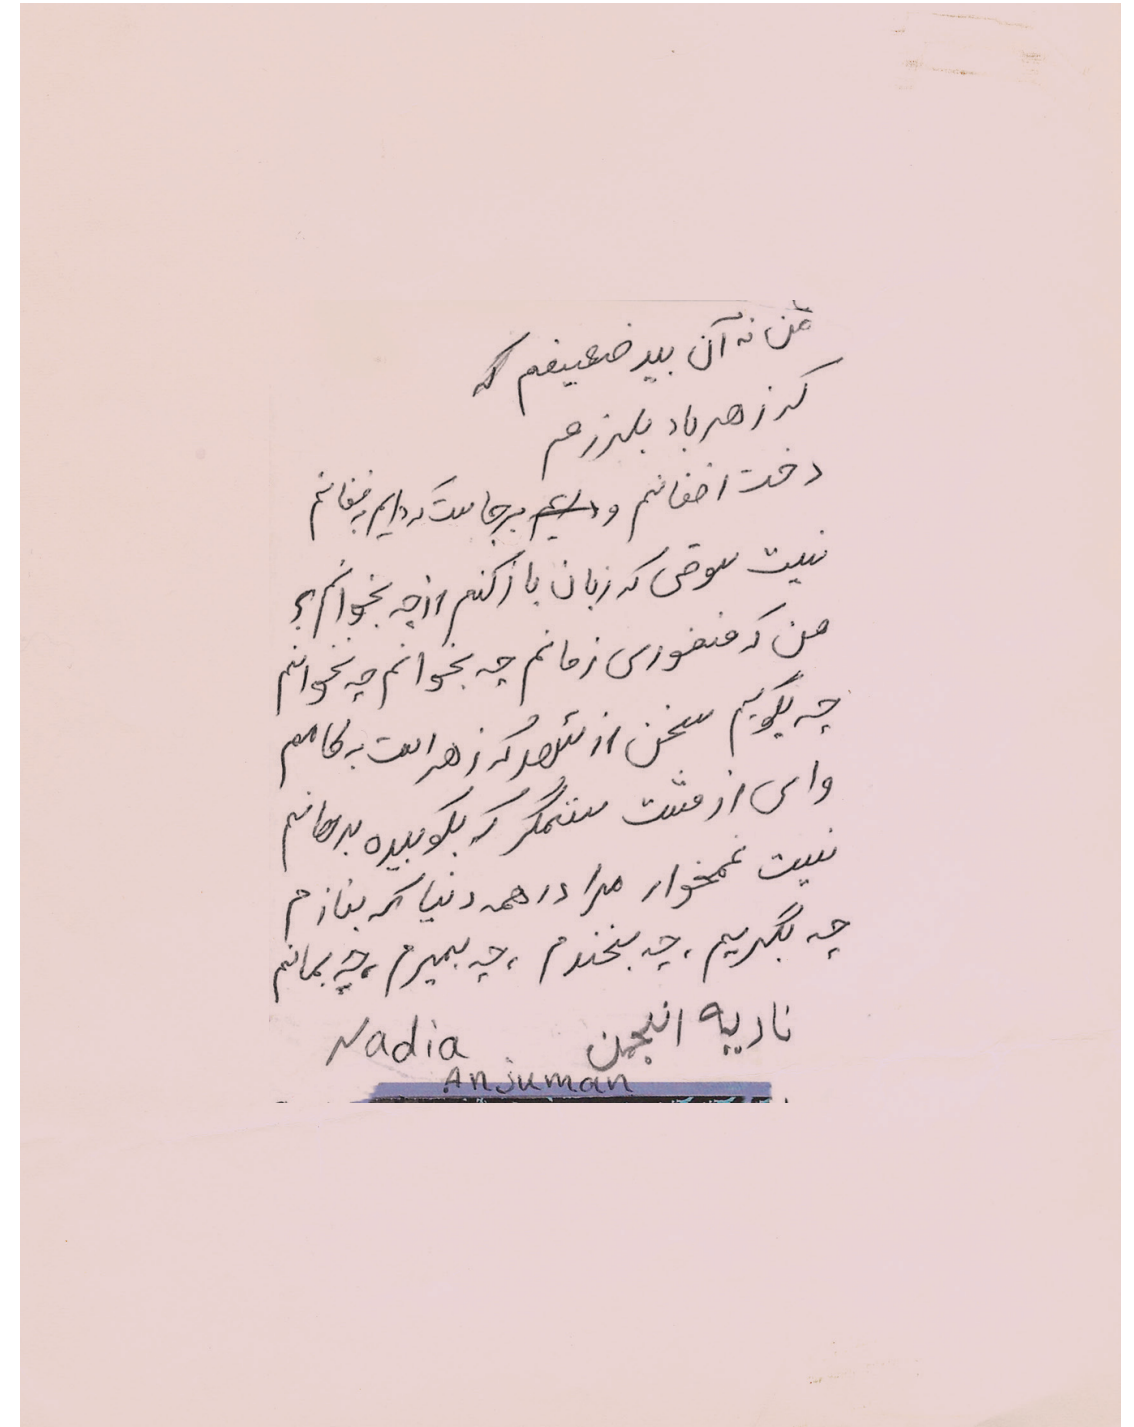 من نه آن بید ضعیفم که
که ز هر باد بلرزم
دخت افغانم و برجاست که دایم به فغانم
نیست شوقی که زبان باز کنم از چه بخوانم؟
من که منفوری زمانم چه بخوانم چه نخوانم
چه بگویم سخن از شهد که زهر است به کامم
وای از مشت ستمگر که بکوبیده دهانم
نیست غمخوار مرا در همه دنیا که بنازم
چه بگریم، چه بخندم، چه بمیرم، چه بمانم
نادیه انجمن Nadia
Anjuman